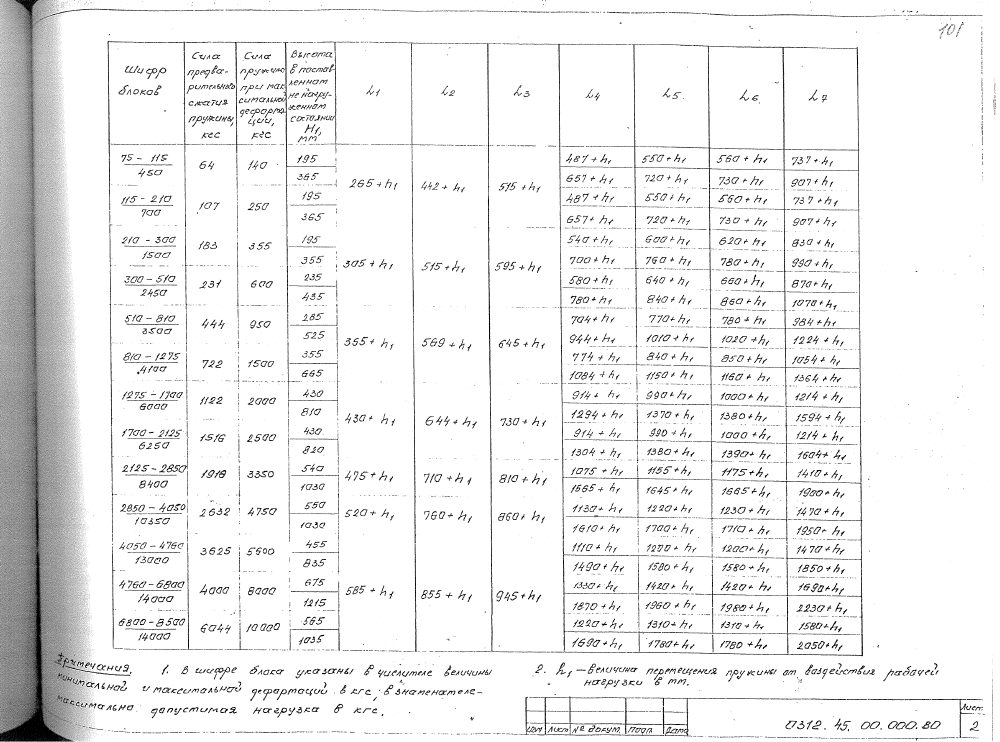 101
Шифр блоков | Сила предва- рительного сжатия пружины, кгс | Сила пружины при мак- симальной деформа- ции, кгс | Высота в постав- ленном не нагру- женном состоянии H1, мм | L1 | L2 | L3 | L4 | L5 | L6 | L7
75 - 115 / 450 | 64 | 140 | 195 | 265 + h1 | 442 + h1 | 515 + h1 | 487 + h1 | 550 + h1 | 560 + h1 | 737 + h1
365 | 657 + h1 | 720 + h1 | 730 + h1 | 907 + h1
115 - 210 / 700 | 107 | 250 | 195 | 487 + h1 | 550 + h1 | 560 + h1 | 737 + h1
365 | 657 + h1 | 720 + h1 | 730 + h1 | 907 + h1
210 - 300 / 1500 | 183 | 355 | 195 | 305 + h1 | 515 + h1 | 595 + h1 | 540 + h1 | 600 + h1 | 620 + h1 | 830 + h1
355 | 700 + h1 | 760 + h1 | 780 + h1 | 990 + h1
300 - 510 / 2450 | 231 | 600 | 235 | 580 + h1 | 640 + h1 | 660 + h1 | 870 + h1
435 | 780 + h1 | 840 + h1 | 860 + h1 | 1070 + h1
510 - 810 / 3500 | 444 | 950 | 285 | 355 + h1 | 569 + h1 | 645 + h1 | 704 + h1 | 770 + h1 | 780 + h1 | 984 + h1
525 | 944 + h1 | 1010 + h1 | 1020 + h1 | 1224 + h1
810 - 1275 / 4100 | 722 | 1500 | 355 | 774 + h1 | 840 + h1 | 850 + h1 | 1054 + h1
665 | 1084 + h1 | 1150 + h1 | 1160 + h1 | 1364 + h1
1275 - 1700 / 6000 | 1122 | 2000 | 430 | 430 + h1 | 644 + h1 | 730 + h1 | 914 + h1 | 990 + h1 | 1000 + h1 | 1214 + h1
810 | 1294 + h1 | 1370 + h1 | 1380 + h1 | 1594 + h1
1700 - 2125 / 6250 | 1516 | 2500 | 430 | 914 + h1 | 990 + h1 | 1000 + h1 | 1214 + h1
820 | 1304 + h1 | 1380 + h1 | 1390 + h1 | 1604 + h1
2125 - 2850 / 8400 | 1918 | 3350 | 540 | 475 + h1 | 710 + h1 | 810 + h1 | 1075 + h1 | 1155 + h1 | 1175 + h1 | 1410 + h1
1030 | 1565 + h1 | 1645 + h1 | 1665 + h1 | 1900 + h1
2850 - 4050 / 10350 | 2632 | 4750 | 550 | 520 + h1 | 760 + h1 | 860 + h1 | 1130 + h1 | 1220 + h1 | 1230 + h1 | 1470 + h1
1030 | 1610 + h1 | 1700 + h1 | 1710 + h1 | 1950 + h1
4050 - 4760 / 13000 | 3625 | 5600 | 455 | 585 + h1 | 855 + h1 | 945 + h1 | 1110 + h1 | 1200 + h1 | 1200 + h1 | 1470 + h1
835 | 1490 + h1 | 1580 + h1 | 1580 + h1 | 1850 + h1
4760 - 6800 / 14000 | 4000 | 8000 | 675 | 1330 + h1 | 1420 + h1 | 1420 + h1 | 1690 + h1
1215 | 1870 + h1 | 1960 + h1 | 1980 + h1 | 2230 + h1
6800 - 8500 / 14000 | 6044 | 10000 | 565 | 1220 + h1 | 1310 + h1 | 1310 + h1 | 1580 + h1
1035 | 1690 + h1 | 1780 + h1 | 1780 + h1 | 2050 + h1
Примечания. 1. В шифре блока указаны в числителе величины
минимальной и максимальной деформаций в кгс, в знаменателе-
максимально допустимая нагрузка в кгс.
2. h1 - величина перемещения пружины от воздействия рабочей
нагрузки в мм.
Изм Лист № докум. Подп. Дата
0312. 45. 00. 000. 80
Лист
2